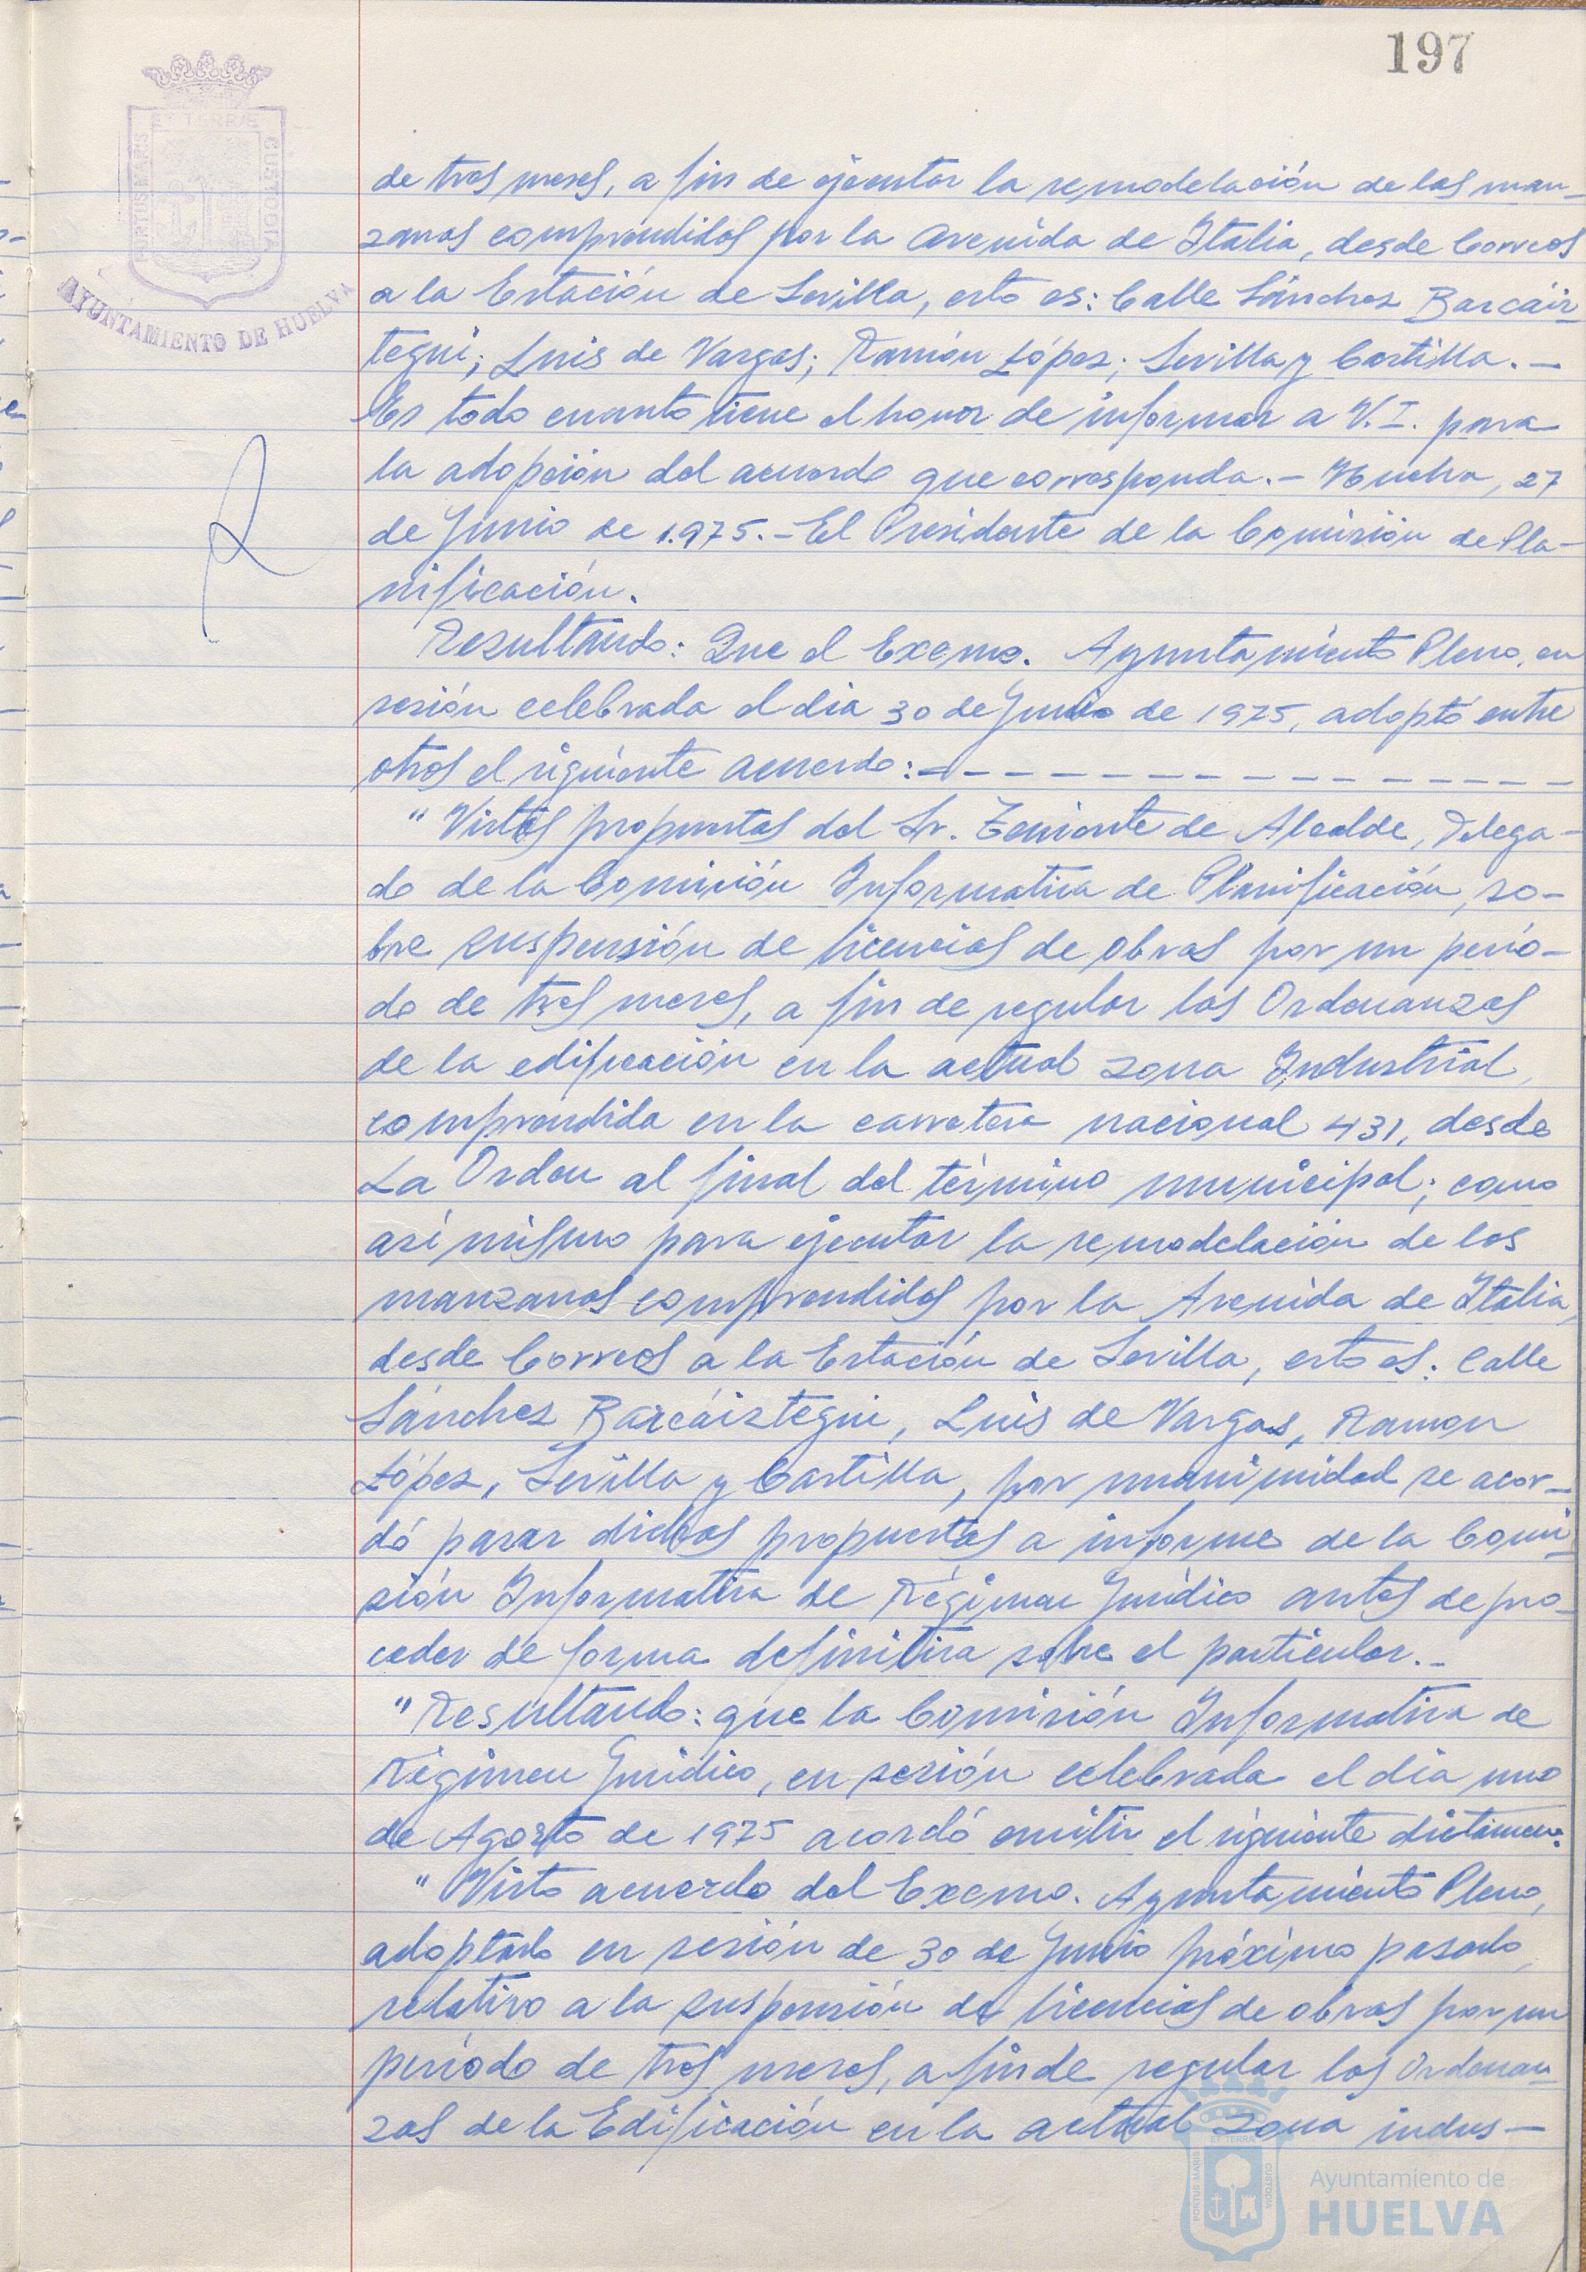 197
ET TERRAE
PORTUS MARIS
CUSTODIA
AYUNTAMIENTO DE HUELVA
de tres meses, a fin de ejecutar la remodelación de las man-
zanas comprendidas por la Avenida de Italia, desde Correos
a la Estación de Sevilla, esto es: Calle Sánchez Barcáiz-
tegui; Luis de Vargas; Ramón López; Sevilla y Castilla. -
Es todo cuanto tiene el honor de informar a V.I. para
la adopción del acuerdo que corresponda. - Huelva, 27
de Junio de 1.975. - El Presidente de la Comisión de Pla-
nificación.
Resultando: Que el Excmo. Ayuntamiento Pleno, en
sesión celebrada el dia 30 de Junio de 1975, adoptó entre
otros el siguiente acuerdo: - - - - - - - - - - - - - - -
"Vistas propuestas del Sr. Teniente de Alcalde, Delega-
do de la Comisión Informativa de Planificación, so-
bre suspensión de licencias de obras por un perío-
do de tres meses, a fin de regular las Ordenanzas
de la edificación en la actual zona Industrial,
comprendida en la carretera nacional 431, desde
La Orden al final del término municipal; como
así mismo para ejecutar la remodelación de las
manzanas comprendidas por la Avenida de Italia,
desde Correos a la Estación de Sevilla, esto es: Calle
Sánchez Barcáiztegui, Luis de Vargas, Ramon
López, Sevilla y Castilla, por unanimidad se acor-
dó pasar dichas propuestas a informe de la Comi-
sión Informativa de Régimen Jurídico antes de pro-
ceder de forma definitiva sobre el particular. -
"Resultando: que la Comisión Informativa de
Régimen Jurídico, en sesión celebrada el dia uno
de Agosto de 1975 acordó emitir el siguiente dictamen:
"Visto acuerdo del Excmo. Ayuntamiento Pleno,
adoptado en sesión de 30 de Junio próximo pasado,
relativo a la suspensión de licencias de obras por un
período de tres meses, a fin de regular las Ordenan-
zas de la Edificación en la actual zona indus-
PORTUS MARIS
ET TERRAE
CUSTODIA
Ayuntamiento de
HUELVA